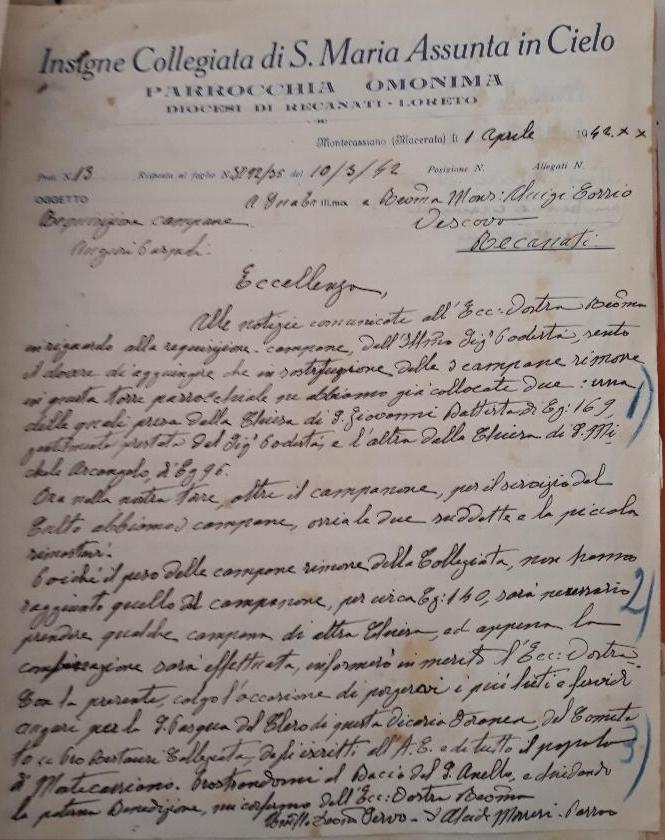 Insigne Collegiata di S. Maria Assunta in Cielo
PARROCCHIA OMONIMA
DIOCESI DI RECANATI - LORETO
Montecassiano (Macerata) lì 1 aprile 1942. XX
Prot. N. 13 Risposta al foglio N. 3292/35 del 10/3/42 Posizione N. Allegati N.
OGGETTO A Sua Ecc. Ill.ma e Rev.ma Mons: Luigi
Requisizione campane Vescovo
Auguri Pasquali. Recanati
Eccellenza,
Alle notizie comunicate all'Ecc: Vostra Rev.ma
in riguardo alla requisizione-campane, dall'Ill.mo Sig. Podestà, sento
il dovere di aggiungere che in sostituzione delle 3 campane rimosse
in questa torre parrocchiale ne abbiamo già collocate due: una
delle quali presa dalla Chiesa di S. Giovanni Battista di Kg: 169, 1)
gentilmente prestata dal Sig. Podestà, e l'altra dalla Chiesa di S. Mi
chele Arcangelo, di Kg 96.
Ora nella nostra torre, oltre il campanone, per il servizio del
Culto abbiamo 3 campane, ossia le due suddette e la piccola
rimastavi.
Poiché il peso delle campane rimosse della Collegiata, non hanno
raggiunto quello del campanone, per circa Kg: 140, sarà necessario 2)
prendere qualche campana di altra Chiesa, ed appena la
sarà effettuata, informerò in merito l'Ecc: Vostra.
Con la presente, colgo l'occasione di porgervi i più lieti e fervidi
auguri per la S. Pasqua del Clero di questa Vicaria Foranea, del Comita
to Pro Restauri Collegiata, degli iscritti all'A.C. e di tutto il popolo 3)
di Montecassiano. Prostrandomi al Bacio del S. Anello, e chiedendo
la paterna Benedizione, mi confermo dell'Ecc: Vostra Rev.ma
Servo